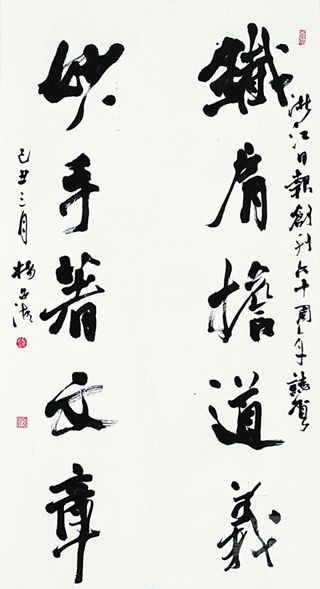 浙江日報創刊六十周年誌賀
鐵肩擔道義
妙手著文章
己丑三月 楊